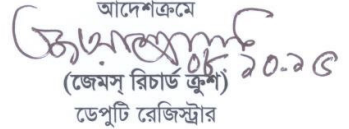 আদেশক্রমে
০৮.১০.২৫
(জেমস্ রিচার্ড ক্রুশ)
ডেপুটি রেজিস্ট্রার